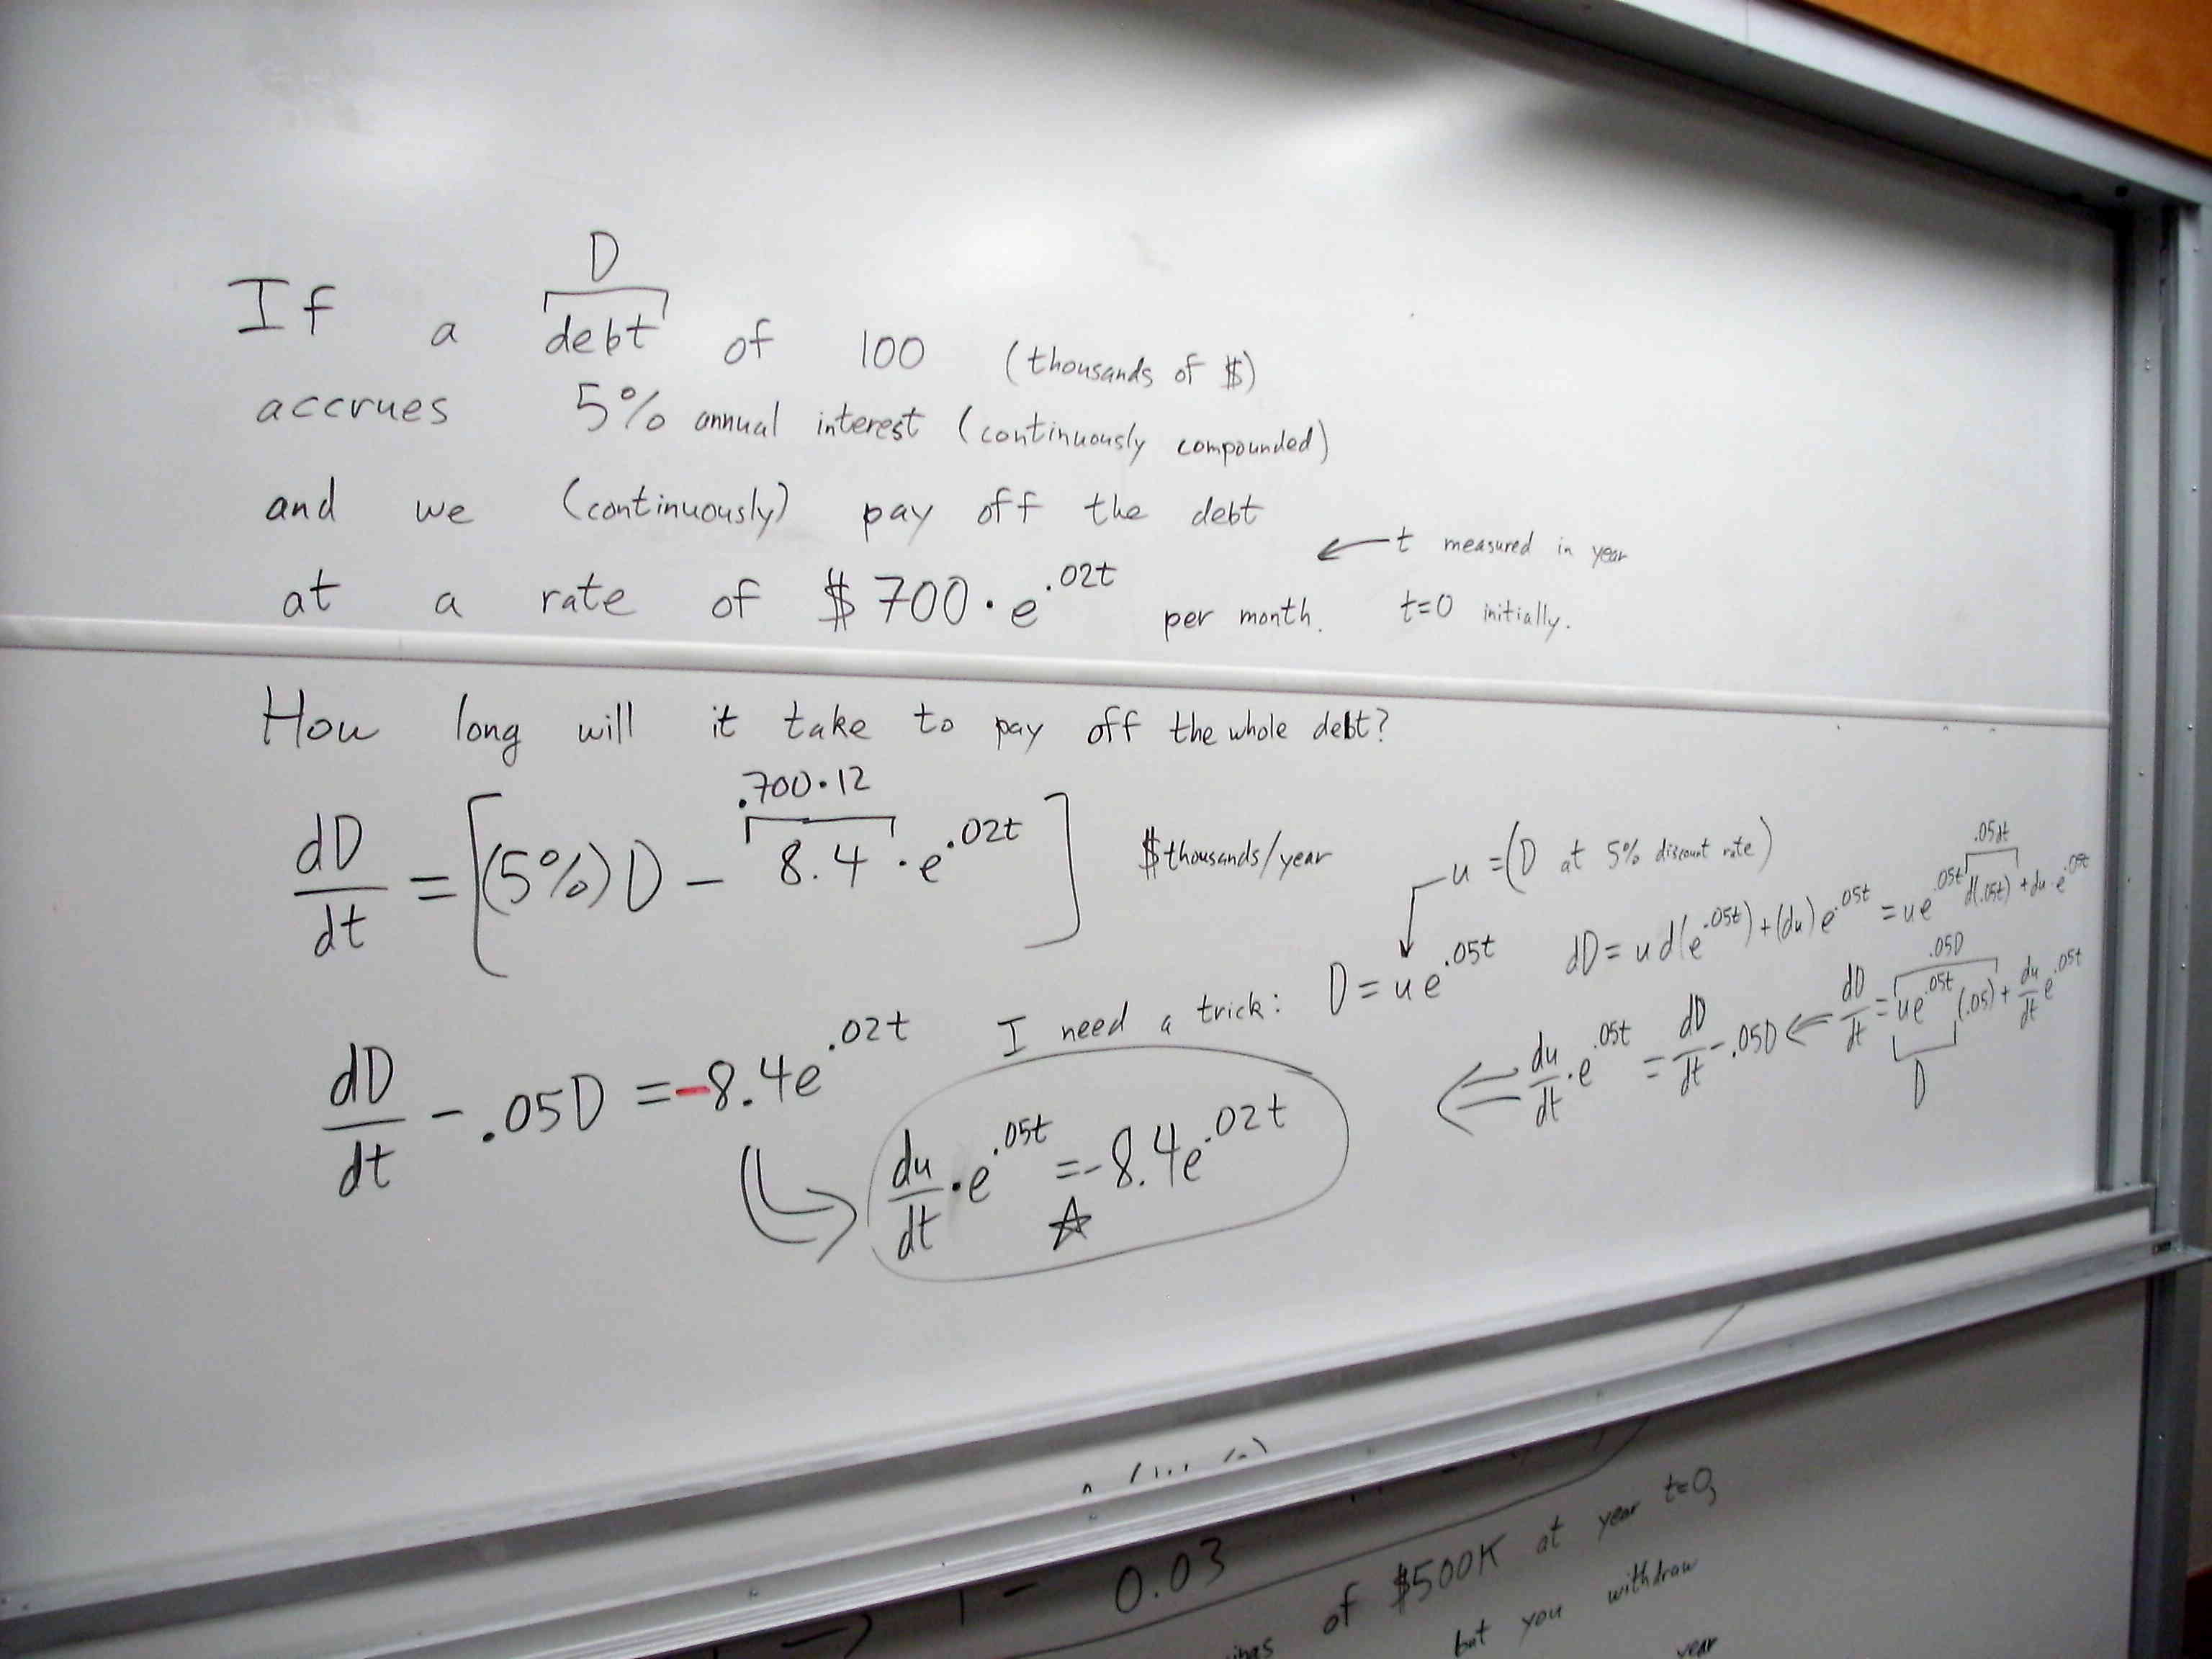 D
If a debt of 100 (thousands of $)
accrues 5% annual interest (continuously compounded)
and we (continuously) pay off the debt
at a rate of $700·e^.02t per month. ← t measured in year
t=0 initially.
How long will it take to pay off the whole debt?
.700·12
dD/dt = [(5%)D − 8.4·e^.02t] $thousands/year
u = (D at 5% discount rate)
.05dt
dD = u d(e^.05t) + (du) e^.05t = ue^.05t d(.05t) + du·e^.05t
dD/dt − .05D = −8.4e^.02t
I need a trick: D = ue^.05t
.05D
dD/dt = ue^.05t (.05) + du/dt e^.05t
D
⇐ du/dt·e^.05t = dD/dt − .05D ⇐
du/dt·e^.05t = −8.4e^.02t
☆
0.03
of $500K at year t=0,
but you withdraw
year